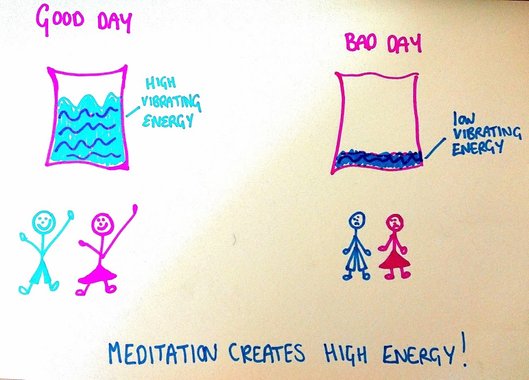 GOOD DAY
HIGH
VIBRATING
ENERGY
BAD DAY
LOW
VIBRATING
ENERGY
MEDITATION CREATES HIGH ENERGY!